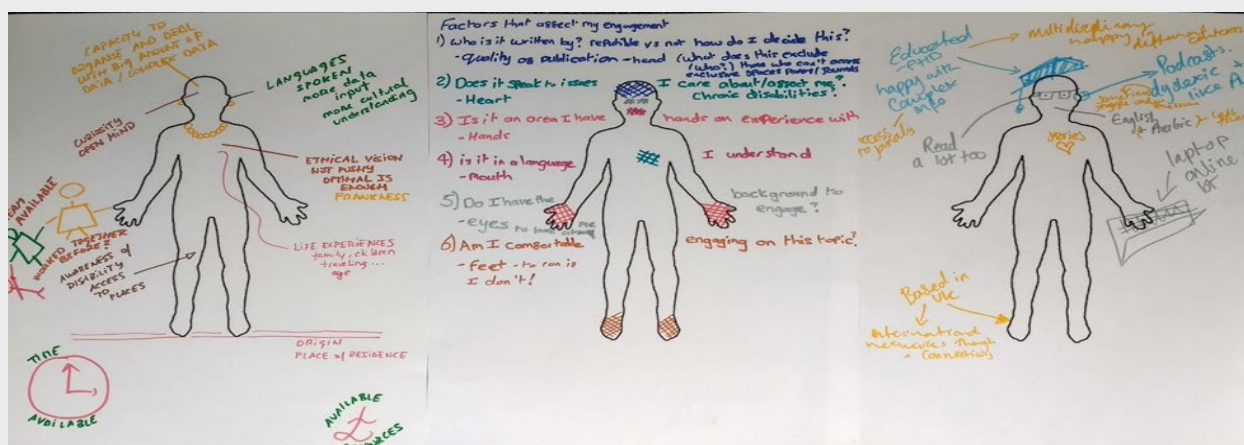 CAPACITY TO
ORGANISE AND DEAL
WITH BIG AMOUNT OF
DATA / COMPLEX DATA
LANGUAGES
SPOKEN
more data
input
more cultural
understanding
CURIOSITY
OPEN MIND
ETHICAL VISION
NOT PUSHY
OPTIMAL IS
ENOUGH
FRANKNESS
AVAILABLE
WORKED TOGETHER
BEFORE?
AWARENESS of
DISABILITY
ACCESS
TO
PLACES
LIFE EXPERIENCES
family, children
traveling...
age
ORIGIN
PLACE of RESIDENCE
TIME
AVAILABLE
AVAILABLE
£
Factors that affect my engagement
1) Who is it written by? reputible vs not how do I decide this?
- quality of publication - head (what does this exclude
(who?) those who can't access
exclusive spaces
2) Does it speak to issues I care about/affect me?
- Heart chronic disabilities?
3) Is it an area I have hands on experience with
- Hands
4) is it in a language I understand
- Mouth
5) Do I have the background to
- eyes to engage?
6) Am I comfortable engaging on this topic?
- feet - to run is
I don't!
Educated
- PHD
happy with
complex
info
multidisciplinary
happy
different
Podcasts.
dyslexic
like
access
to
Read
a lot too
English
+ Arabic
stories
laptop
online
lot
Based in
UK
International
networks
+ connections